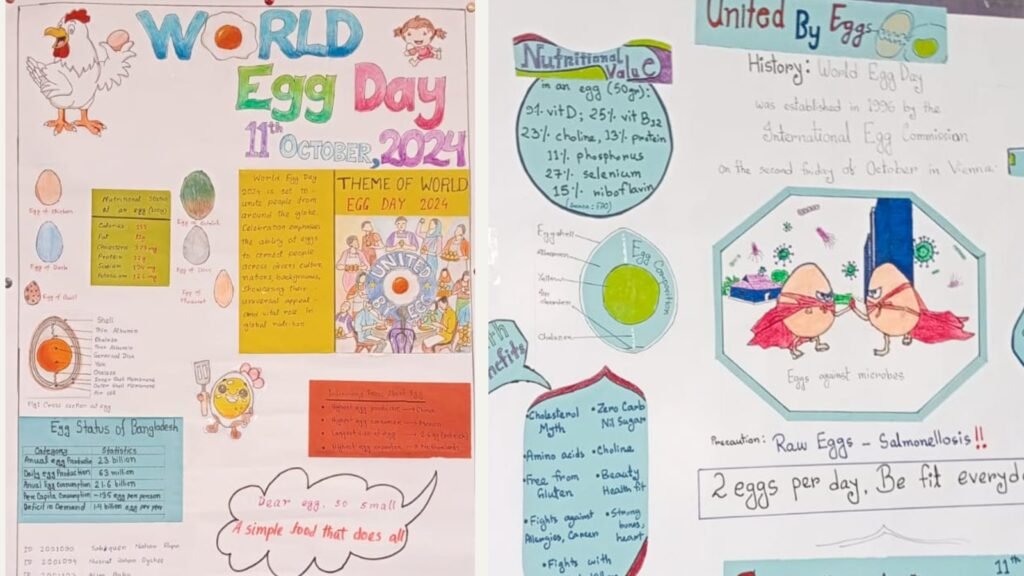 WORLD
Egg Day
11th OCTOBER, 2024
Egg of chicken
Egg of Duck
Egg of Quail
Nutritional Status
of an egg (100g)
Calories 155
Fat 11g
Protein
Sodium
Potassium
Egg of
Egg of
World Egg Day
2024 is set to
unite people from
around the globe.
Celebration emphasizes
the ability of eggs
to connect people
across
nations, backgrounds,
showcasing their
universal appeal
and vital role in
global nutrition
THEME OF WORLD
EGG DAY 2024
UNITED
Shell
Thin Albumen
Chalaza
Thick Albumin
Germinal Disc
Yolk
Chalaza
Inner Shell Membrane
Outer Shell Membrane
Air cell
Fig: Cross section of egg
Egg Status of Bangladesh
Category Statistics
Annual egg Production 23 billion
Daily egg Production 63 million
Annual Egg Consumption 21.6 billion
Per Capita Consumption ~135 egg per person
Deficit in Demand 1.4 billion egg per year
Highest egg producer - China
Highest egg consumer - Mexico
Dear egg, so small
A simple food that does all
ID 2001090
ID 2001094
Nutritional
Value
in an egg (50gm):
9% vit D; 25% vit B12
23% choline, 13% protein
11% phosphorus
27% selenium
15% riboflavin
Eggshell
Albumen
Chalaza
Egg Composition
Benefits
•Cholesterol
Myth
•Zero Carb
Nil Sugar
•Amino acids
•Choline
•Free from
Gluten
•Beauty
Health fit
•Fights against
Allergies, Cancer
•Strong
bones,
heart
•Fights with
United By Eggs
History: World Egg Day
was established in 1996 by the
International Egg Commission
on the second friday of October in Vienna.
Eggs against microbes
Precaution: Raw Eggs - Salmonellosis!!
2 eggs per day, Be fit everyda
11th